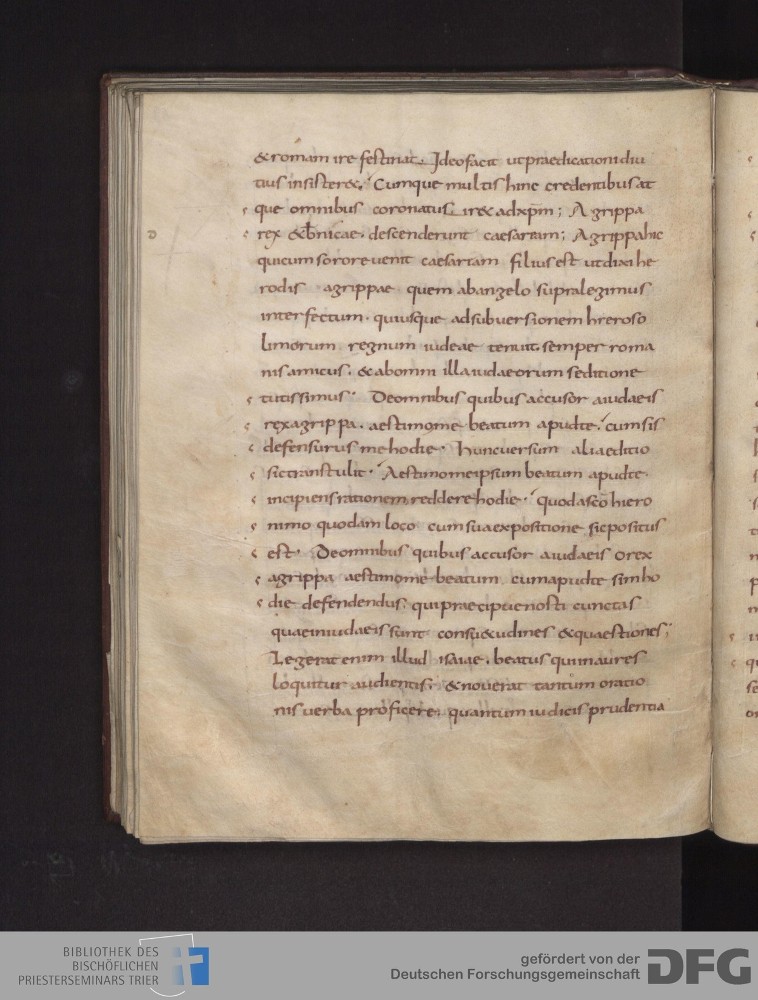 &romam ire festinat. Ideo facit ut praedicationi diu
tius insister&. Cumque multis hinc credentibus at
que omnibus coronatus ir& ad xp̄m; Agrippa
rex & b̄nicae descenderunt caesaream; Agrippa hic
qui cum sorore uenit caesaream filius est ut dixi he
rodis agrippae quem ab angelo supra legimus
interfectum. quiusque ad subuersionem hieroso
limorum regnum iudeae tenuit. semper roma
nis amicus. & ab omni illa iudaeorum seditione
tutissimus. De omnibus quibus accusor a iudaeis
rex agrippa. aestimo me beatum apud te. cum sis
defensurus me hodie. Hunc uersum alia editio
sic transtulit. Aestimo me ipsum beatum apud te
incipiens rationem reddere hodie. quod a scō hiero
nimo quodam loco cum sua expositione sic positus
est. De omnibus quibus accusor a iudaeis o rex
agrippa aestimo me beatum cum apud te sim ho
die defendendus. qui praecipue nosti cunctas
quae in iudaeis sunt consu&udines & quaestiones;
Legerat enim illud isaiae. beatus qui in aures
loquitur audientis. & nouerat tantum oratio
nis uerba proficere. quantum iudicis prudentia
BIBLIOTHEK DES
BISCHÖFLICHEN
PRIESTERSEMINARS TRIER
gefördert von der
Deutschen Forschungsgemeinschaft
DFG